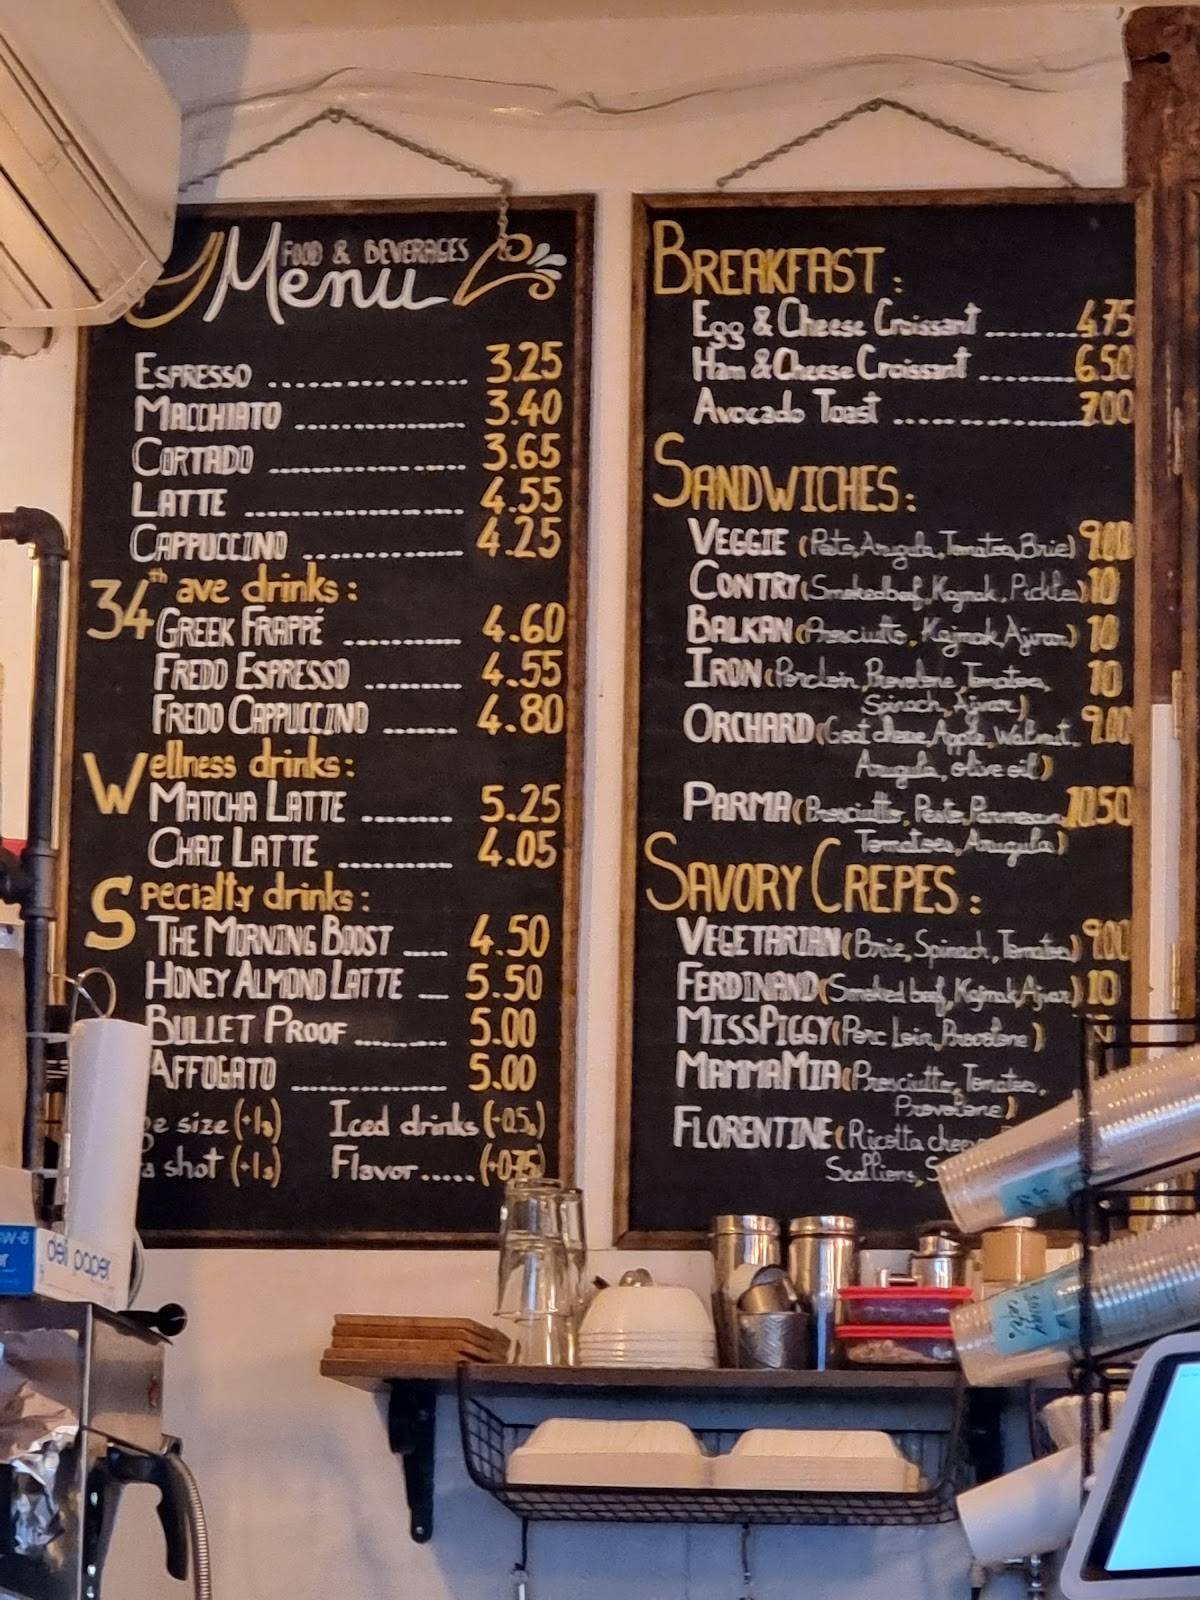 FOOD & BEVERAGES
Menu
ESPRESSO .................. 3.25
MACCHIATO ............... 3.40
CORTADO .................. 3.65
LATTE .................... 4.55
CAPPUCCINO ............... 4.25
34th ave drinks:
GREEK FRAPPÉ ........... 4.60
FREDO ESPRESSO ......... 4.55
FREDO CAPPUCCINO ....... 4.80
Wellness drinks:
MATCHA LATTE ........ 5.25
CHAI LATTE .......... 4.05
Specialty drinks:
THE MORNING BOOST .... 4.50
HONEY ALMOND LATTE ... 5.50
BULLET PROOF ......... 5.00
AFFOGATO .............. 5.00
size (+1$) Iced drinks (+0.5$)
shot (+1$) Flavor ..... (+0.75)
BREAKFAST:
Egg & Cheese Croissant ......... 4.75
Ham & Cheese Croissant ......... 6.50
Avocado Toast .................. 7.00
SANDWICHES:
VEGGIE (Pesto, Arugula, Tomatoes, Brie) 9.00
CONTRY (Smoked beef, Kajmak, Pickles) 10
BALKAN (Prosciutto, Kajmak, Ajvar) 10
IRON (Porc loin, Provolone, Tomatoes, 10
Spinach, Ajvar)
ORCHARD (Goat cheese, Apple, Walnut, 9.00
Arugula, olive oil)
PARMA (Prosciutto, Pesto, Parmesan, 10.50
Tomatoes, Arugula)
SAVORY CREPES:
VEGETARIAN (Brie, Spinach, Tomatoes) 9.00
FERDINAND (Smoked beef, Kajmak, Ajvar) 10
MISSPIGGY (Porc Loin, Provolone)
MAMMAMIA (Prosciutto, Tomatoes,
Provolone)
FLORENTINE (Ricotta chee
Scallions, S
deli paper